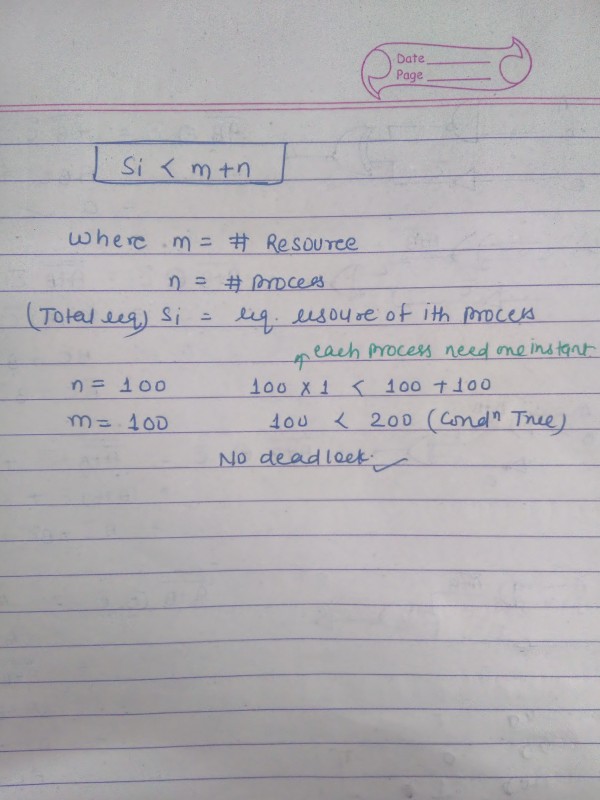 Date
Page
Si < m+n
Where m = # Resource
n = # process
(Total req) Si = req. resoure of ith process
each process need one instant
n = 100 100 x 1 < 100 + 100
m = 100 100 < 200 (Condn True)
No deadlock.